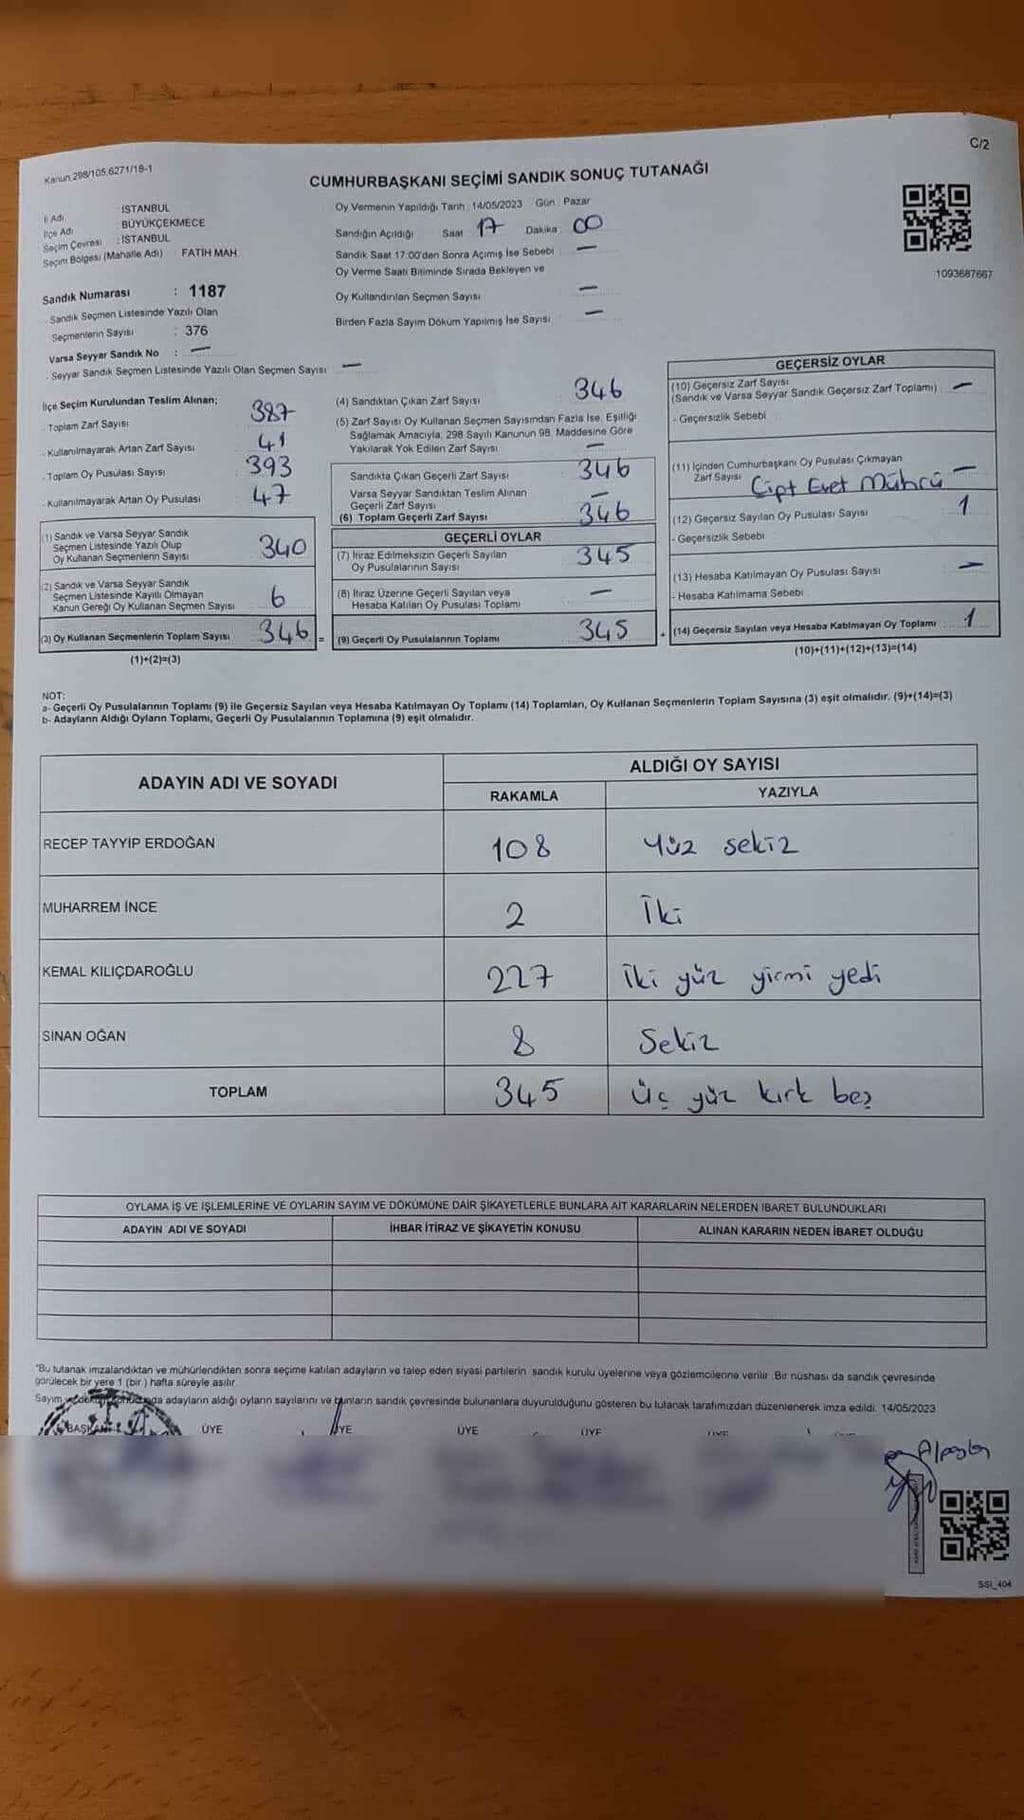 C/2
Kanun,298/105.6271/18-1
CUMHURBAŞKANI SEÇİMİ SANDIK SONUÇ TUTANAĞI
İl Adı İSTANBUL
İlçe Adı BÜYÜKÇEKMECE
Seçim Çevresi : İSTANBUL
Seçim Bölgesi (Mahalle Adı) FATİH MAH.
Sandık Numarası : 1187
Sandık Seçmen Listesinde Yazılı Olan
Seçmenlerin Sayısı : 376
Varsa Seyyar Sandık No : —
Seyyar Sandık Seçmen Listesinde Yazılı Olan Seçmen Sayısı —
Oy Vermenin Yapıldığı Tarih 14/05/2023 Gün Pazar
Sandığın Açıldığı Saat 17 Dakika 00
Sandık Saat 17:00'den Sonra Açılmış İse Sebebi —
Oy Verme Saati Bitiminde Sırada Bekleyen ve
Oy Kullandırılan Seçmen Sayısı —
Birden Fazla Sayım Döküm Yapılmış İse Sayısı —
1093687667
İlçe Seçim Kurulundan Teslim Alınan;
Toplam Zarf Sayısı 387
Kullanılmayarak Artan Zarf Sayısı 41
Toplam Oy Pusulası Sayısı 393
Kullanılmayarak Artan Oy Pusulası 47
(1) Sandık ve Varsa Seyyar Sandık
Seçmen Listesinde Yazılı Olup
Oy Kullanan Seçmenlerin Sayısı 340
(2) Sandık ve Varsa Seyyar Sandık
Seçmen Listesinde Kayıtlı Olmayan
Kanun Gereği Oy Kullanan Seçmen Sayısı 6
(3) Oy Kullanan Seçmenlerin Toplam Sayısı 346 =
(1)+(2)=(3)
(4) Sandıktan Çıkan Zarf Sayısı 346
(5) Zarf Sayısı Oy Kullanan Seçmen Sayısından Fazla İse, Eşitliği
Sağlamak Amacıyla, 298 Sayılı Kanunun 98. Maddesine Göre
Yakılarak Yok Edilen Zarf Sayısı —
Sandıkta Çıkan Geçerli Zarf Sayısı 346
Varsa Seyyar Sandıktan Teslim Alınan
Geçerli Zarf Sayısı —
(6) Toplam Geçerli Zarf Sayısı 346
GEÇERLİ OYLAR
(7) İtiraz Edilmeksizin Geçerli Sayılan
Oy Pusulalarının Sayısı 345
(8) İtiraz Üzerine Geçerli Sayılan veya
Hesaba Katılan Oy Pusulası Toplamı —
(9) Geçerli Oy Pusulalarının Toplamı 345 +
GEÇERSİZ OYLAR
(10) Geçersiz Zarf Sayısı
(Sandık ve Varsa Seyyar Sandık Geçersiz Zarf Toplamı) —
- Geçersizlik Sebebi
(11) İçinden Cumhurbaşkanı Oy Pusulası Çıkmayan
Zarf Sayısı —
Çipt Evet Mührü
(12) Geçersiz Sayılan Oy Pusulası Sayısı 1
- Geçersizlik Sebebi
(13) Hesaba Katılmayan Oy Pusulası Sayısı —
- Hesaba Katılmama Sebebi
(14) Geçersiz Sayılan veya Hesaba Katılmayan Oy Toplamı 1
(10)+(11)+(12)+(13)=(14)
NOT:
a- Geçerli Oy Pusulalarının Toplamı (9) ile Geçersiz Sayılan veya Hesaba Katılmayan Oy Toplamı (14) Toplamları, Oy Kullanan Seçmenlerin Toplam Sayısına (3) eşit olmalıdır. (9)+(14)=(3)
b- Adayların Aldığı Oyların Toplamı, Geçerli Oy Pusulalarının Toplamına (9) eşit olmalıdır.
ADAYIN ADI VE SOYADI
ALDIĞI OY SAYISI
RAKAMLA YAZIYLA
RECEP TAYYİP ERDOĞAN 108 Yüz sekiz
MUHARREM İNCE 2 İki
KEMAL KILIÇDAROĞLU 227 İki yüz yirmi yedi
SİNAN OĞAN 8 Sekiz
TOPLAM 345 Üç yüz kırk beş
OYLAMA İŞ VE İŞLEMLERİNE VE OYLARIN SAYIM VE DÖKÜMÜNE DAİR ŞİKAYETLERLE BUNLARA AİT KARARLARIN NELERDEN İBARET BULUNDUKLARI
ADAYIN ADI VE SOYADI İHBAR İTİRAZ VE ŞİKAYETİN KONUSU ALINAN KARARIN NEDEN İBARET OLDUĞU
"Bu tutanak imzalandıktan ve mühürlendikten sonra seçime katılan adayların ve talep eden siyasi partilerin sandık kurulu üyelerine veya gözlemcilerine verilir. Bir nüshası da sandık çevresinde
görülecek bir yere 1 (bir) hafta süreyle asılır.
Sayım ve döküm adayların aldığı oyların sayılarını ve bunların sandık çevresinde bulunanlara duyurulduğunu gösteren bu tutanak tarafımızdan düzenlenerek imza edildi. 14/05/2023
BAŞKAN ÜYE ÜYE ÜYE ÜYE
SSİ_404